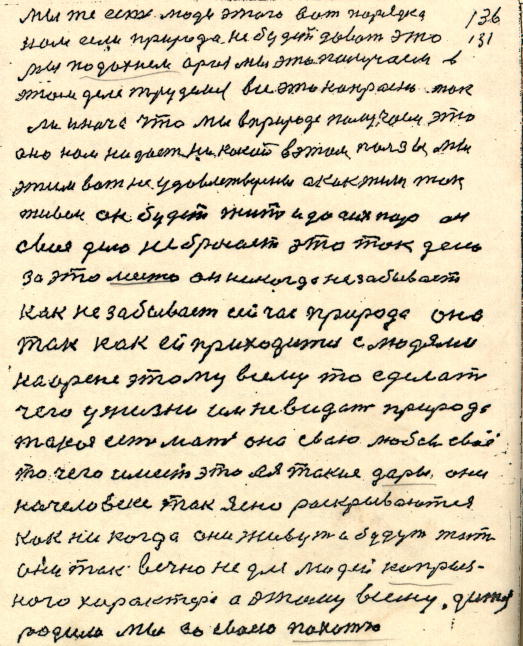 мы же есть люди этого вот порядка 136
нам если природа не будет давать это 131
мы подохнем а раз мы это получаем в
этом деле трудемся все это напрасно так
ли иначе что мы в природе получаем это
оно нам не дает никакой в этом пользы мы
этим вот не удовлетворены а как жили так
живем он будет жить и до сих пор он
свое дело не бросает это ток день
за это место он никогда не забывает
как не забывает сейчас природа она
так как ей приходится с людями
на арене этому всему то сделать
чего у жизни им не видать природа
такая есть мать она сваю любовь своё
то чего имеет это ея такия дары они
на человеке так ясно раскрываются
как никогда они живут и будут жить
они так вечно не для людей каприз-
ного характера а этому всему дитя
родила мы со своею похотью